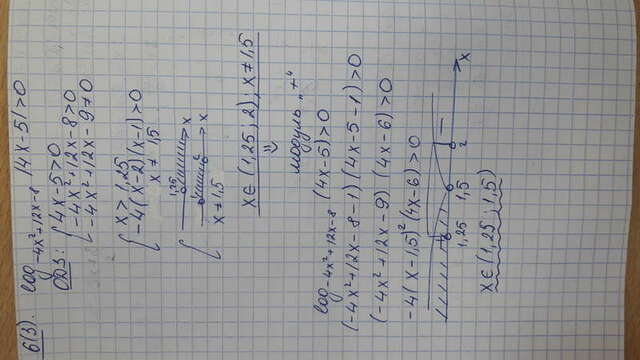 6(3). log -4x²+12x-8 |4x-5|>0
ОДЗ: { 4x-5>0
-4x²+12x-8>0
-4x²+12x-9≠0
{ x>1,25
-4(x-2)(x-1)>0
x≠1,5
{ 1,25 x
1 2 x
x≠1,5
x∈(1,25; 2); x≠1,5
модуль „+“
log -4x²+12x-8 (4x-5)>0
(-4x²+12x-8-1)(4x-5-1)>0
(-4x²+12x-9)(4x-6)>0
-4(x-1,5)²(4x-6)>0
1,25 1,5 2 x
x∈(1,25; 1,5)